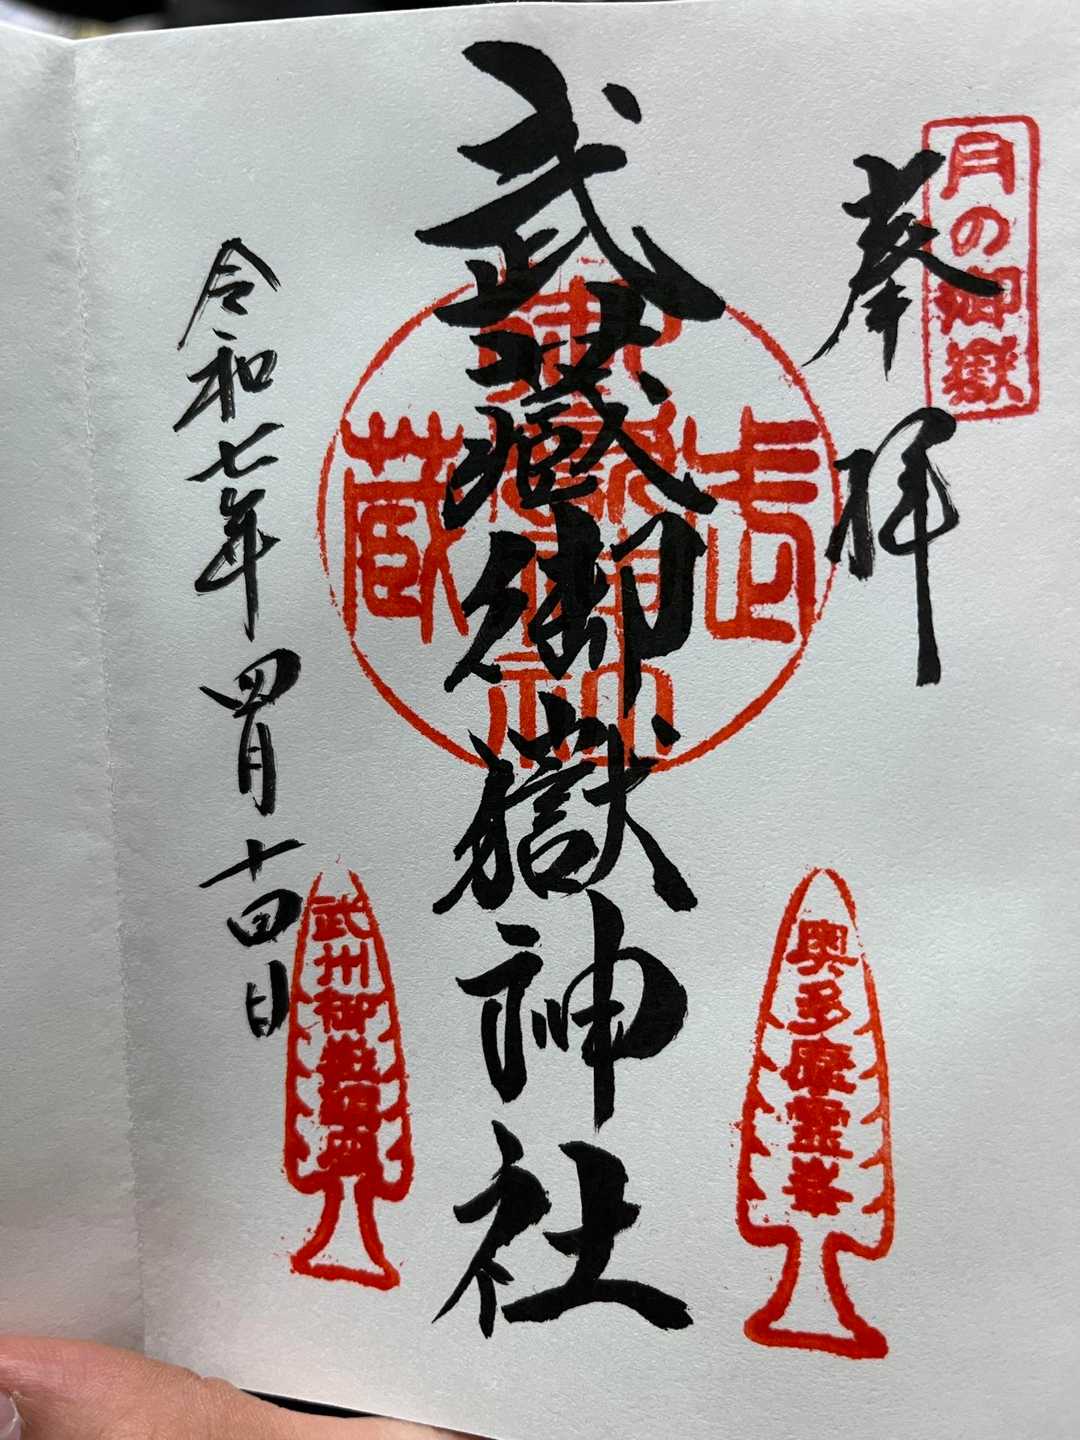 月の御嶽
奉拝
武蔵御嶽神社
武蔵
奥多摩霊峯
令和七年四月十四日
武州御嶽